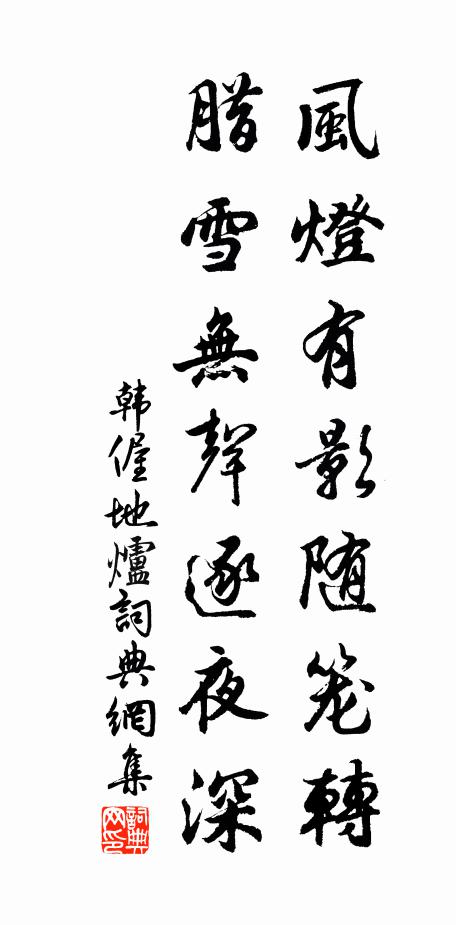 風燈有影随笼轉
腊雪無聲逐夜深
韩偓地爐詞典網集
詞典网印